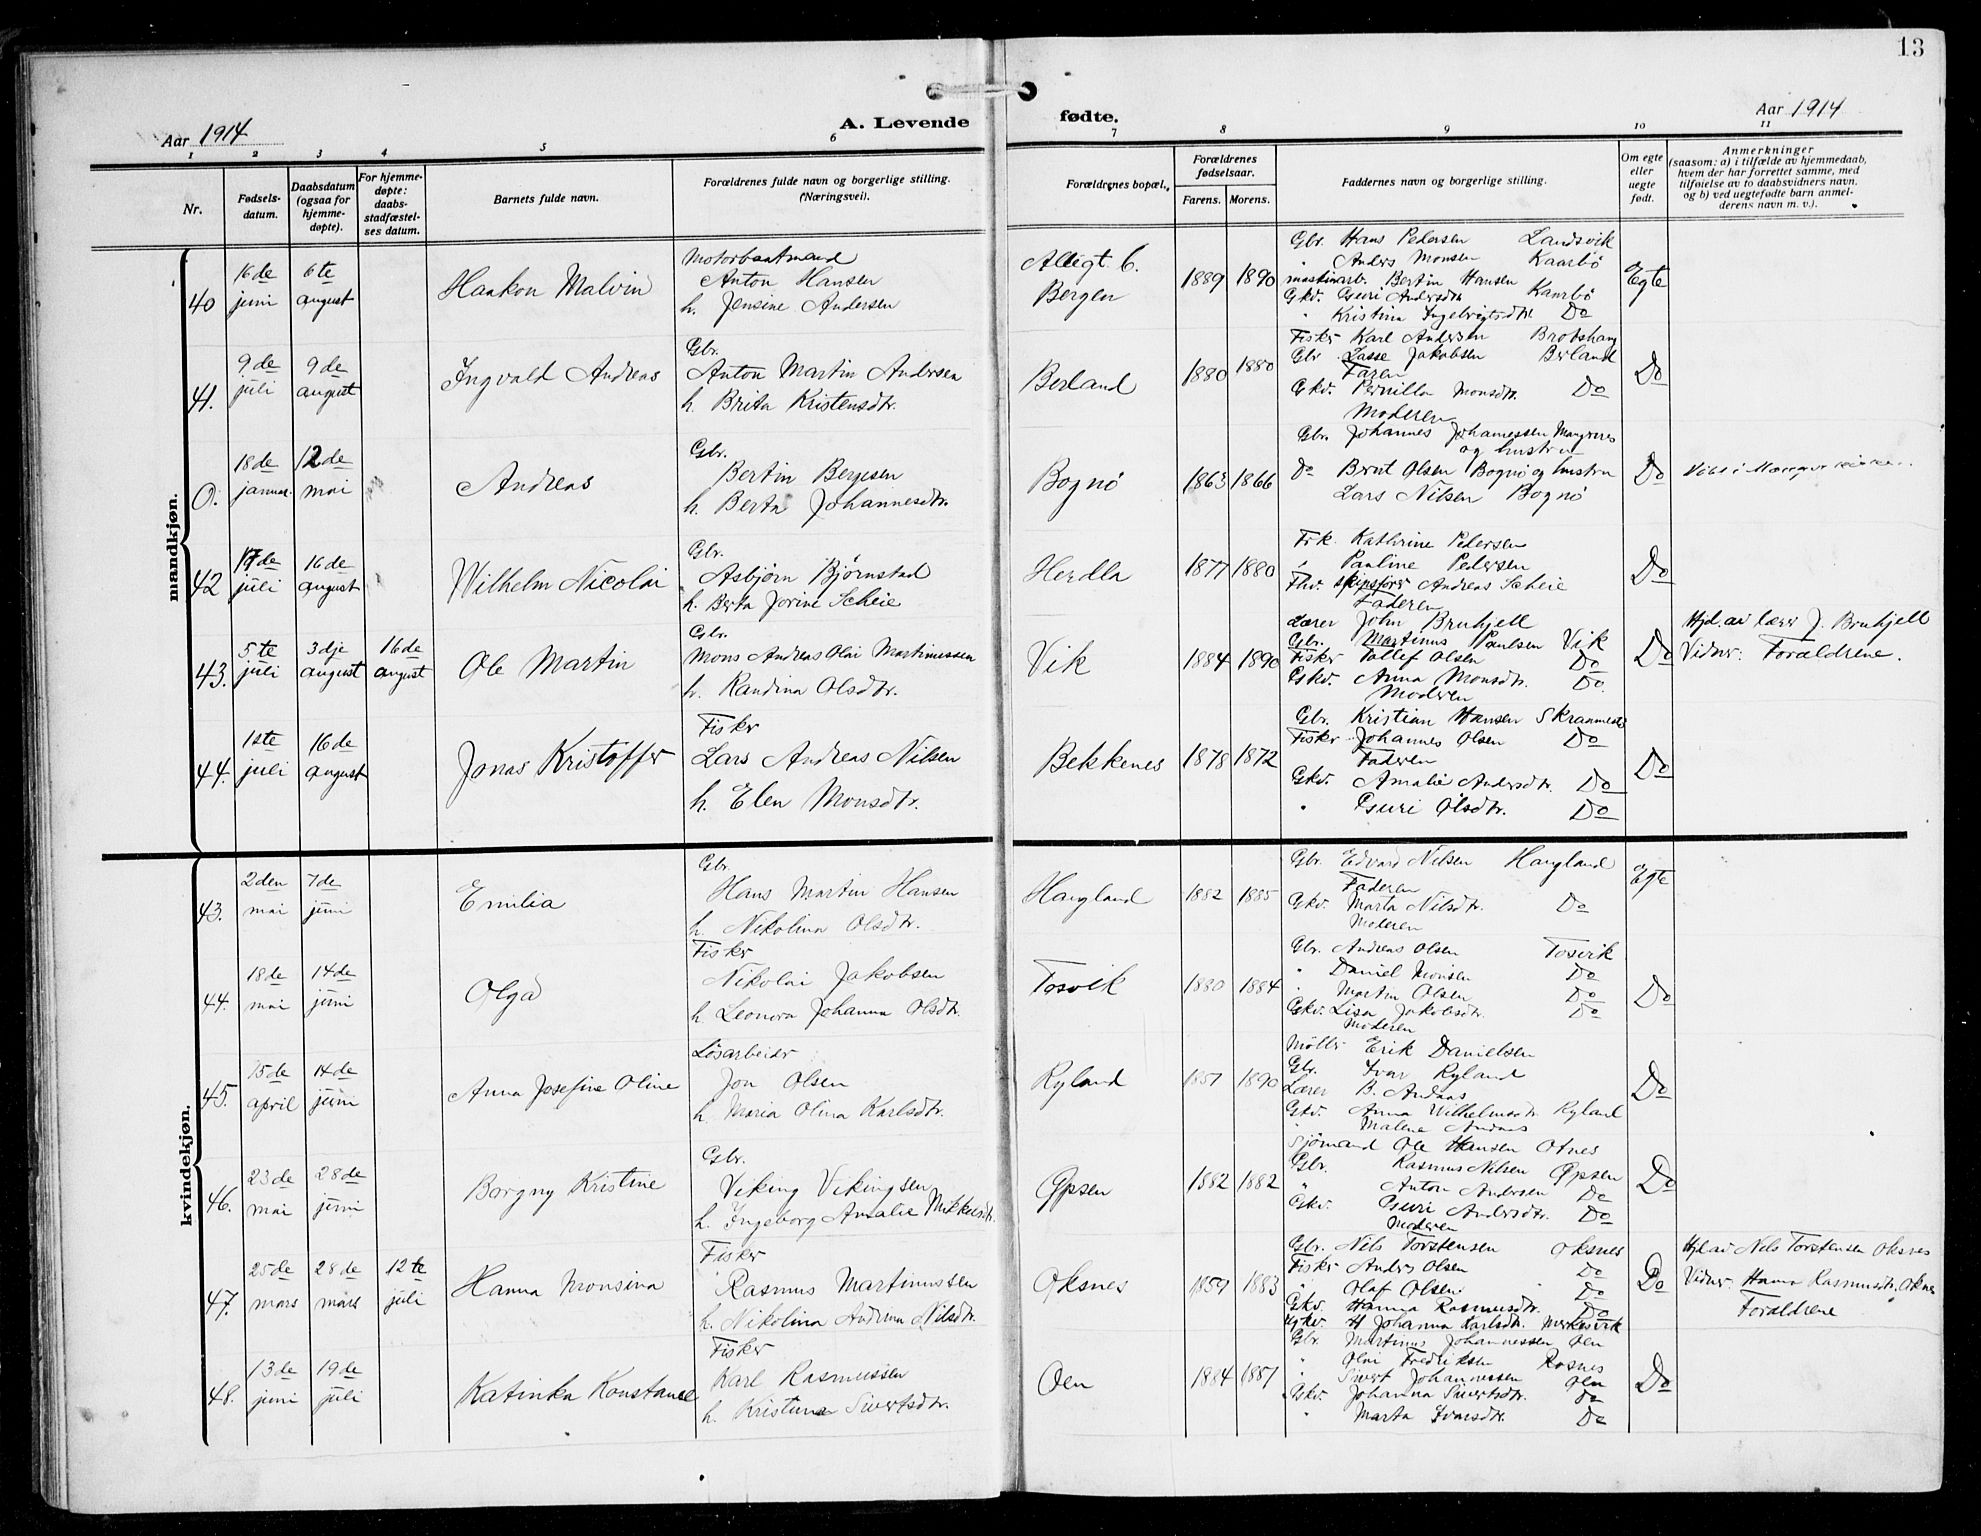 13
Aar 1914
A. Levende
fødte.
Aar 1914
1 2 3 4 5 6 7 8 9 10 11
Nr.
Fødsels-
datum.
Daabsdatum
(ogsaa for
hjemme-
døpte).
For hjemme-
døpte:
daabs-
stadfæstel-
ses datum.
Barnets fulde navn.
Forældrenes fulde navn og borgerlige stilling.
(Næringsvei).
Forældrenes bopæl.
Forældrenes
fødselsaar.
Farens. Morens.
Faddernes navn og borgerlige stilling.
Om egte
eller
uegte
født.
Anmerkninger
(saasom: a) i tilfælde av hjemmedaab,
hvem der har forrettet samme, med
tilføielse av to daabsvidners navn.
og b) ved uegtefødte barn anmel-
derens navn m. v.).
mandkjøn.
40
16de
juni
6te
august
Haakon Malvin
Motorbaatmand
Anton Hansen
h. Jensine Andersen
Bergen
1889 1890
Gbr. Hans Pedersen Landsvik
" Anders Monsen Kaarbø
maskinarb. Bertin Hansen Kaarbø
Gkv. Guri Andersdtr.
" Kristina Ingebrigtsdtr. Do
Egte
41.
9de
juli
9de
august
Ingvald Andreas
Gbr.
Anton Martin Andersen
h. Brita Kristensdtr.
Berland
1880 1880
Fisker Karl Andersen
Gbr Lasse Jakobsen Berland
Faren
Gkv. Pernilla Monsdtr. Do
Moderen
Do
0.
18de
januar.
12de
mai
Andreas
Gbr.
Bertin Bergesen
h. Berta Johannesdtr.
Bognø
1863 1866
Gbr. Johannes Johannessen
og hustru
Do Bernt Olsen Bognø og hustru
Lars Nilsen Bognø
Do
42
17de
juli
16de
august
Wilhelm Nicolai
Gbr.
Asbjørn Bjørnstad
h. Berta Jorine Scheie
Herdla
1877 1880
Frk. Kathrine Pedersen
" Pauline Pedersen
Fhv. skipsfører Andreas Scheie
Faderen
Do
43.
5te
juli
3dje
august
16de
august
Ole Martin
Gbr.
Mons Andreas Olai Martinussen
h. Randina Olsdtr.
Vik
1884 1890
Lærer John Bruhjell
Gbr. Martinus Paulsen Vik
Fisker Tollef Olsen Do
Gkv. Anna Monsdtr. Do.
Moderen
Do
Hjd. av lærer J. Bruhjell
Vidner: Forældrene.
44.
1ste
juli
16de
august
Jonas Kristoffer
Fisker
Lars Andreas Nilsen
h. Elen Monsdtr.
Bekkenes
1878 1872
Gbr. Kristian Hansen
Fisker Johannes Olsen Do
Faderen
Gkv. Amalie Andersdtr. Do
" Guri Olsdtr. Do
Do
kvindekjøn.
43.
2den
mai
7de
juni
Emilia
Gbr.
Hans Martin Hansen
h. Nikolina Olsdtr.
Haugland
1882 1885
Gbr Edvard Nilsen Haugland
Faderen
Gkv. Marta Nilsdtr. Do
Moderen
Egte
44.
18de
mai
14de
juni
Olga
Fisker
Nikolai Jakobsen
h. Leonora Johanna Olsdtr.
Tosvik
1880 1884
Gbr. Andreas Olsen Tosvik
" Daniel Monsen Do
" Martin Olsen Do
Gkv. Lisa Jakobsdtr. Do
Moderen
Do
45.
15de
april
14de
juni
Anna Josefine Oline
Løsarbeider
Jon Olsen
h. Maria Olina Karlsdtr.
Ryland
1857 1890
Møller Erik Danielsen
Gbr. Ivar Ryland
Lærer B. Andaas
Gkv. Anna Wilhelmsdtr. Ryland
" Malene Andaas
Do
46.
23de
mai
28de
juni
Borgny Kristine
Gbr.
Viking Vikingsen
h. Ingeborg Amalie Mikkelsdtr.
Øpsen
1882 1882
Sjømand Ole Hansen
Gbr. Rasmus Nilsen Øpsen
" Anton Andersen Do
Gkv. Guri Andersdtr. Do
Moderen
Do
47.
25de
mars
28de
mars
12te
juli
Hanna Monsina
Fisker
Rasmus Martinussen
h. Nikolina Andrina Nilsdtr.
Oksnes
1859 1883
Gbr. Nils Torstensen Oksnes
Fisker Anders Olsen Do
" Olaf Olsen Do
Gkv. Hanna Rasmusdtr. Do
Ugkv. H Johanna Karlsdtr.
Do
Hjd av Nils Torstensen Oksnes
Vidner: Hanna Rasmusdtr. Oksnes
Forældrene
48.
13de
juni
19de
juli
Katinka Konstance
Fisker
Karl Rasmussen
h. Kristina Sivertsdtr.
Oen
1884 1887
Gbr. Martinus Johannessen Oen
" Olai Fredriksen Rosnes
" Sivert Johannessen Oen
Gkv. Johanna Sivertsdtr. Do
" Marta Ivarsdtr. Do
Do